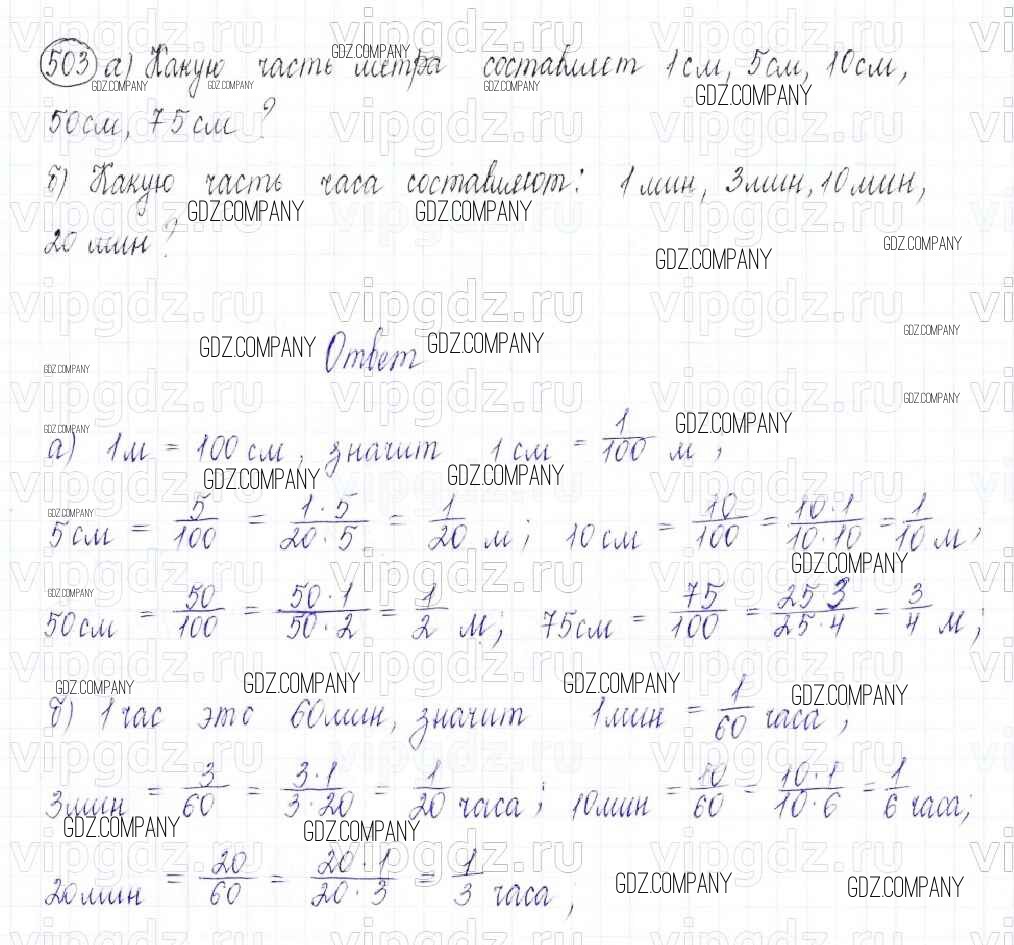 503 а) Какую часть метра составляет 1см, 5см, 10см,
50см, 75см ?
б) Какую часть часа составляют: 1мин, 3мин, 10мин,
20 мин ?
Ответ
а) 1м = 100 см, значит 1 см = 1/100 м ;
5см = 5/100 = 1·5/20·5 = 1/20 м ; 10см = 10/100 = 10·1/10·10 = 1/10 м ;
50см = 50/100 = 50·1/50·2 = 1/2 м ; 75см = 75/100 = 25 3/25·4 = 3/4 м ;
б) 1 час это 60мин, значит 1мин = 1/60 часа ;
3мин = 3/60 = 3·1/3·20 = 1/20 часа ; 10мин = 10/60 = 10·1/10·6 = 1/6 часа;
20мин = 20/60 = 20·1/20·3 = 1/3 часа ;
GDZ.COMPANY
vipgdz.ru